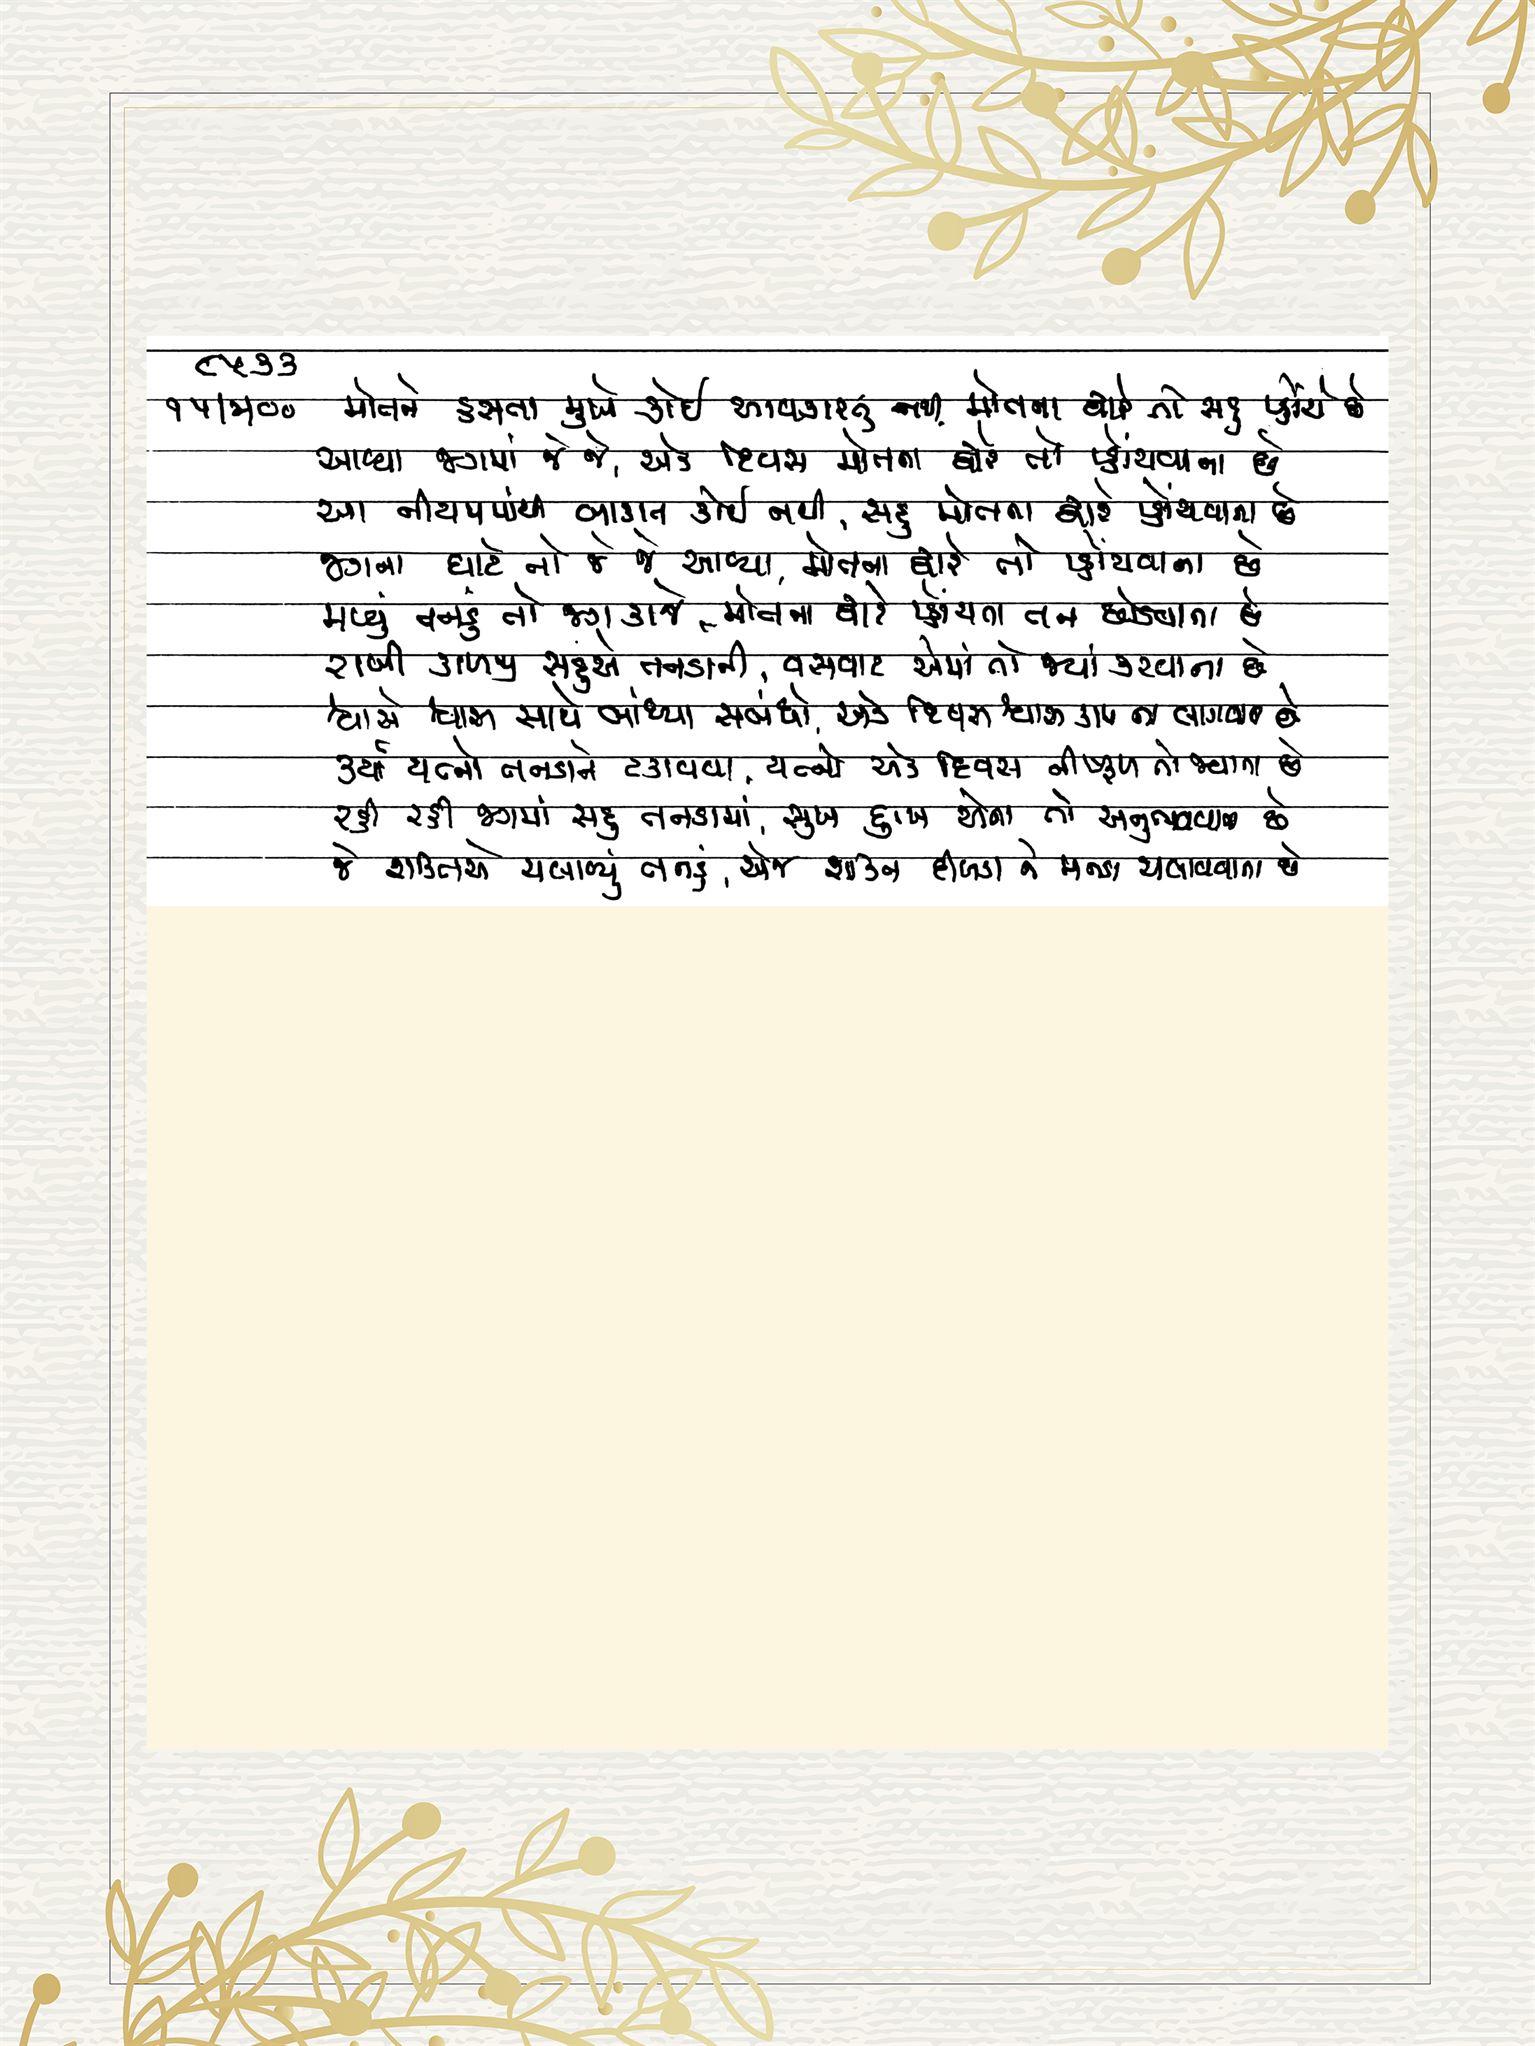 ૯૫૩૩
૧૫/૫/૦૦ મોતને હસતા મુખે કોઈ આવકારતું નથી, મોતના દ્વારે તો સહુ પ્હોંચે છે
આવ્યા જગમાં જે જે, એક દિવસ મોતના દ્વારે તો પ્હોંચવાના છે
આ નીયમમાંથી બાકાત કોઈ નથી, સહુ મોતના દ્વારે પ્હોંચવાના છે
જગના ઘાટે તો જે જે આવ્યા, મોતના દ્વારે તો પ્હોંચવાના છે
મળ્યું તનડું તો જગ કાજે, મોતના દ્વારે પ્હોંચતા તન છોડવાના છે
રાખી કાળજી સહુએ તનડાની, વસવાટ એમાં તો જ્યાં કરવાના છે
શ્વાસે શ્વાસ સાથે બાંધ્યા સબંધો, એક દિવસ શ્વાસ કાપ ના લાગવાના છે
કર્યા યત્નો તનડાને ટકાવવા, યત્નો એક દિવસ નીષ્ફળ તો જવાના છે
રહી રહી જગમાં સહુ તનડામાં, સુખ દુઃખ એના તો અનુભવવાના છે
જે શક્તિએ ચલાવ્યું તનડું, એજ શક્તિ દીલડા ને મનડા ચલાવવાના છે